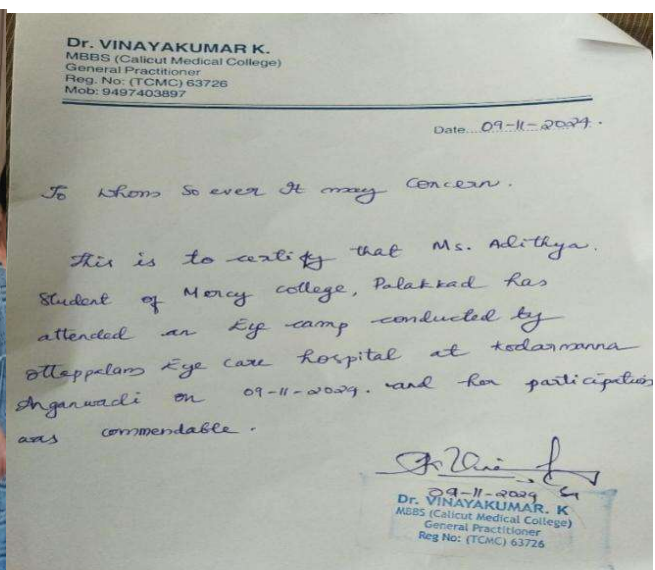 Dr. VINAYAKUMAR K.
MBBS (Calicut Medical College)
General Practitioner
Reg. No: (TCMC) 63726
Mob: 9497403897
Date... 09-11-2024.
To whom so ever It may concern.
This is to certify that Ms. Adithya.
Student of Mercy college, Palakkad has
attended an Eye camp conducted by
ottappalam Eye care hospital at kodarmanna
Anganwadi on 09-11-2024. and her participation
was commendable.
09-11-2024
Dr. VINAYAKUMAR. K
MBBS (Calicut Medical College)
General Practitioner
Reg No: (TCMC) 63726